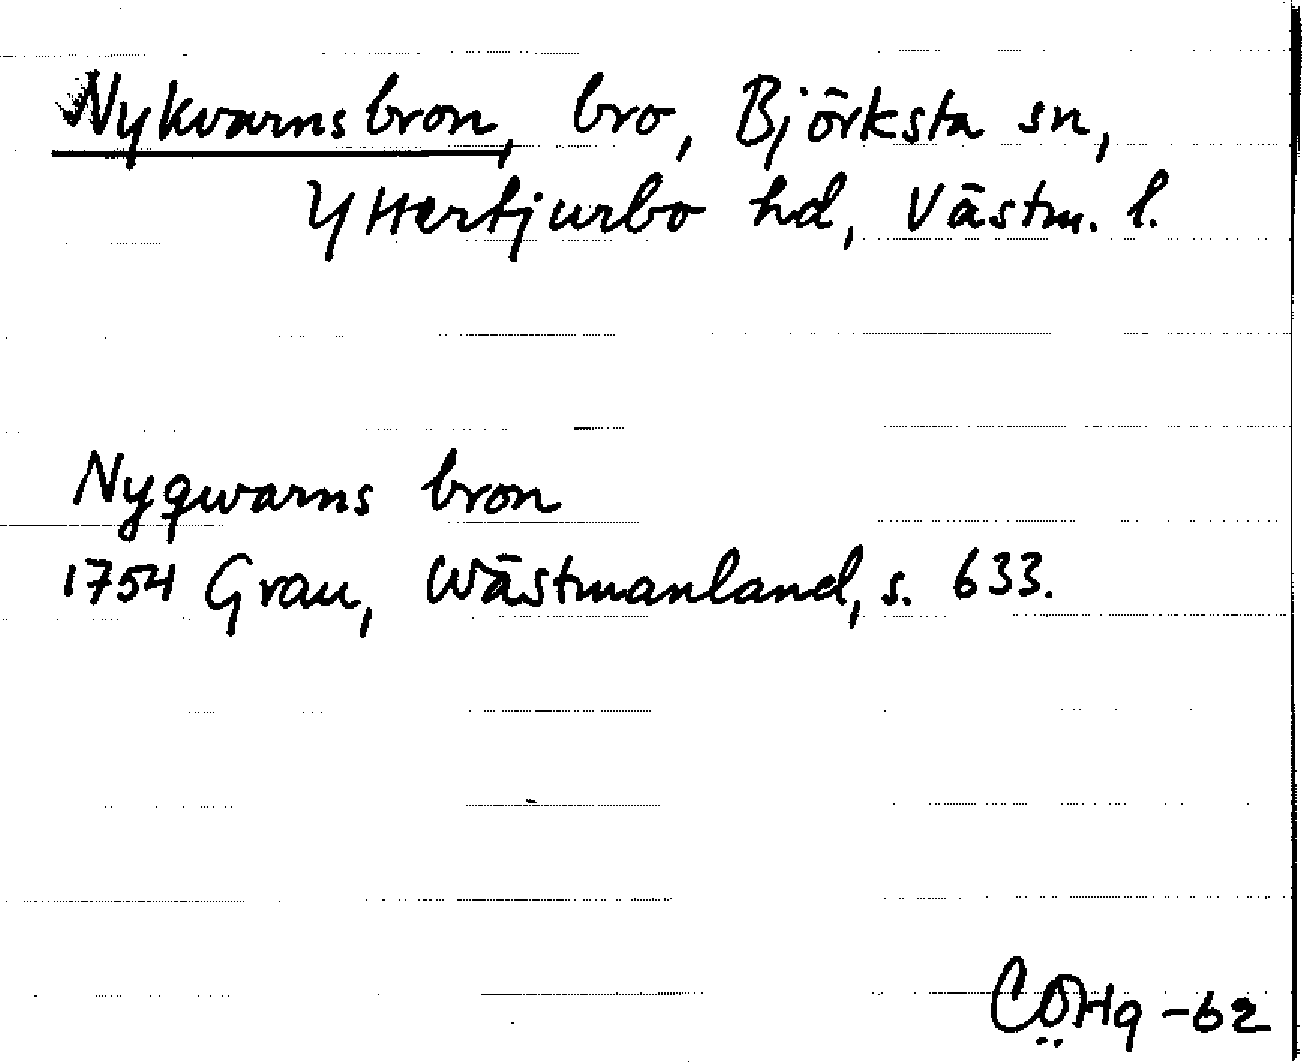 Nykvarnsbron, bro, Björksta sn,
Yttertjurbo hd, Västm. l.
Nyqwarns bron
1754 Grau, Wästmanland, s. 633.
CÖHg -62